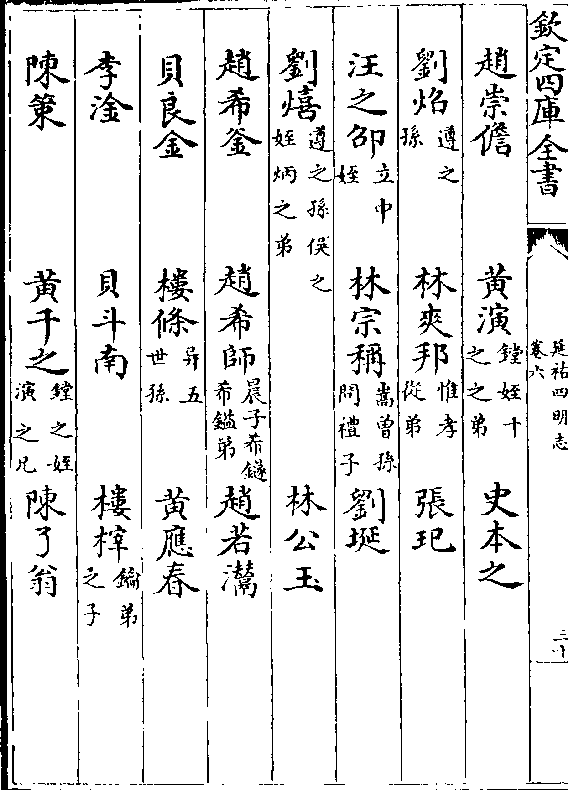 欽定四庫全書
延祐四明志
卷六
三十
趙崇儋 黃演鏜姪千之之弟 史本之
劉炤遵之孫 林爽邦惟孝從弟 張玘
汪之卲立中姪 林宗稱嵩曾孫問禮子 劉埏
劉熺遵之孫俁之姪炳之弟 林公玉
趙希釡 趙希師晨子希鐩希鑑弟 趙若灊
貝良金 樓絛异五世孫 黃應春
李淦 貝斗南 樓梓鑰弟之子
陳策 黃千之鏜之姪演之兄 陳了翁